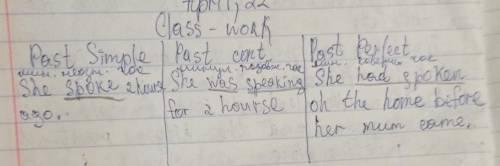 Class - work
Past Simple
She spoke 2 hours
ago.
Past cont.
She was speaking
for 2 hourse
Past Perfect
She had spoken
oh the home before
her mum came.